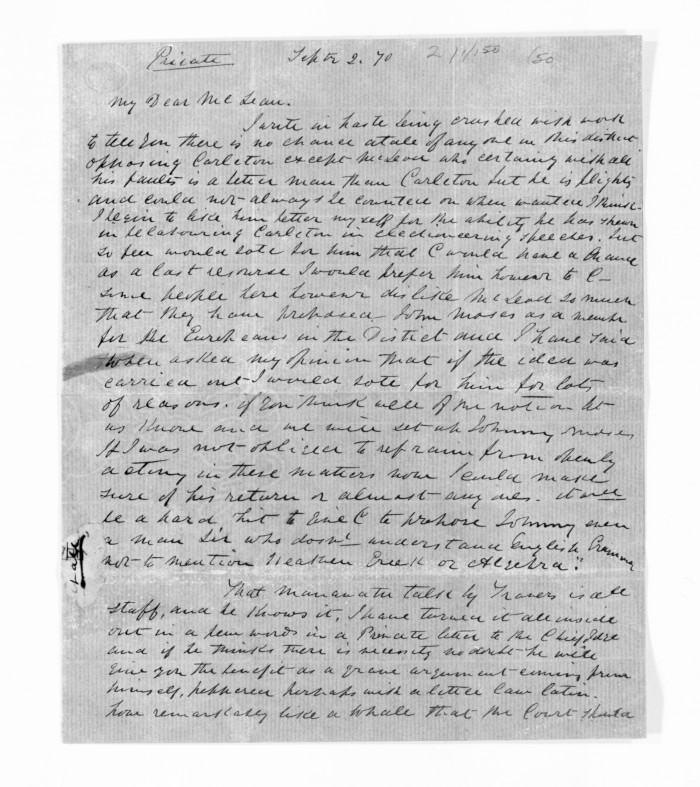 Private Septr 2. 70 2/1/150 (50
My Dear McLean.
I write in haste being crushed with work
to tell you there is no chance atale of any one in this district
opposing Carleton except McLeod who certainly with all
his faults is a better man than Carleton but he is flighty
and could not always be counted on when wanted I think
I begin to like him better myself for the ability he has shewn
in belabouring Carleton in electioneering speeches. but
so few would vote for him that C would have a chance
as a last resourse I would prefer him however to C—
some people here however dislike McLeod so much
that they have proposed John Moses as a member
for the in the District and I have said
when asked my opinion that if the idea was
carried out I would vote for him for lots
of reasons. if you think well of the notion let
us know and we will set up Johnny Moses
If I was not obliged to refrain from openly
acting in these matters now I could make
sure of his return or almost any ones. it will
be a hard hit to C to propose Johnny even
a man Sir who doesnt understand English Grammar
not to mention Heathen Greek or Algebra"
That talk by Travers is all
staff, and he knows it, I have turned it all inside
out in a few words in a Private letter to the Chief
and if he thinks there is necessity no doubt he will
give you the benefit as a grave argument coming from
himself, peppered perhaps with a little law latin.
how remarkably like a Whale that the Court should